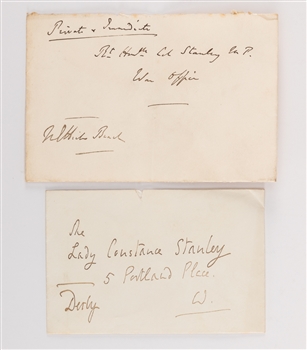 Private & Immediate
Rt Honble Col Stanley M.P.
War Office
The
Lady Constance Stanley
5 Portland Place.
Derby W.